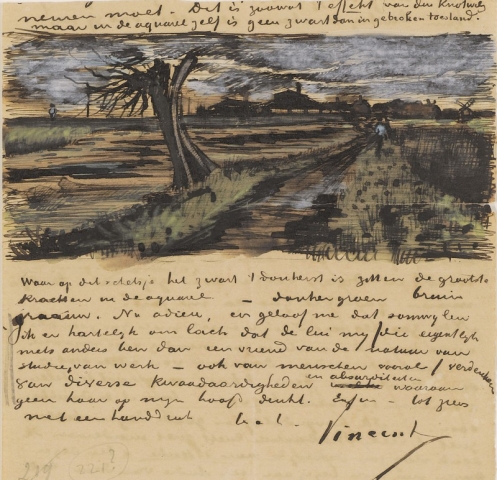 nemen moet. Dit is zoowat 't effekt van den Knotwilg
maar in de aquarel zelf is geen zwart dan in gebroken toestand.
Waar op dit schetsje het zwart 't donkerst is zitten de grootste
krachten in de aquarel — donkergroen bruin
graauw. Nu adieu, en geloof me dat somwijlen
ik er hartelijk om lach dat de lui mij /die eigentlijk
niets anders ben dan een vriend van de natuur van
studie, van werk — ook van menschen vooral/ verdenken
van diverse kwaadaardigheden en absurditeiten waaraan
geen haar op mijn hoofd denkt. Enfin — tot ziens
met een handdruk t. à t. Vincent